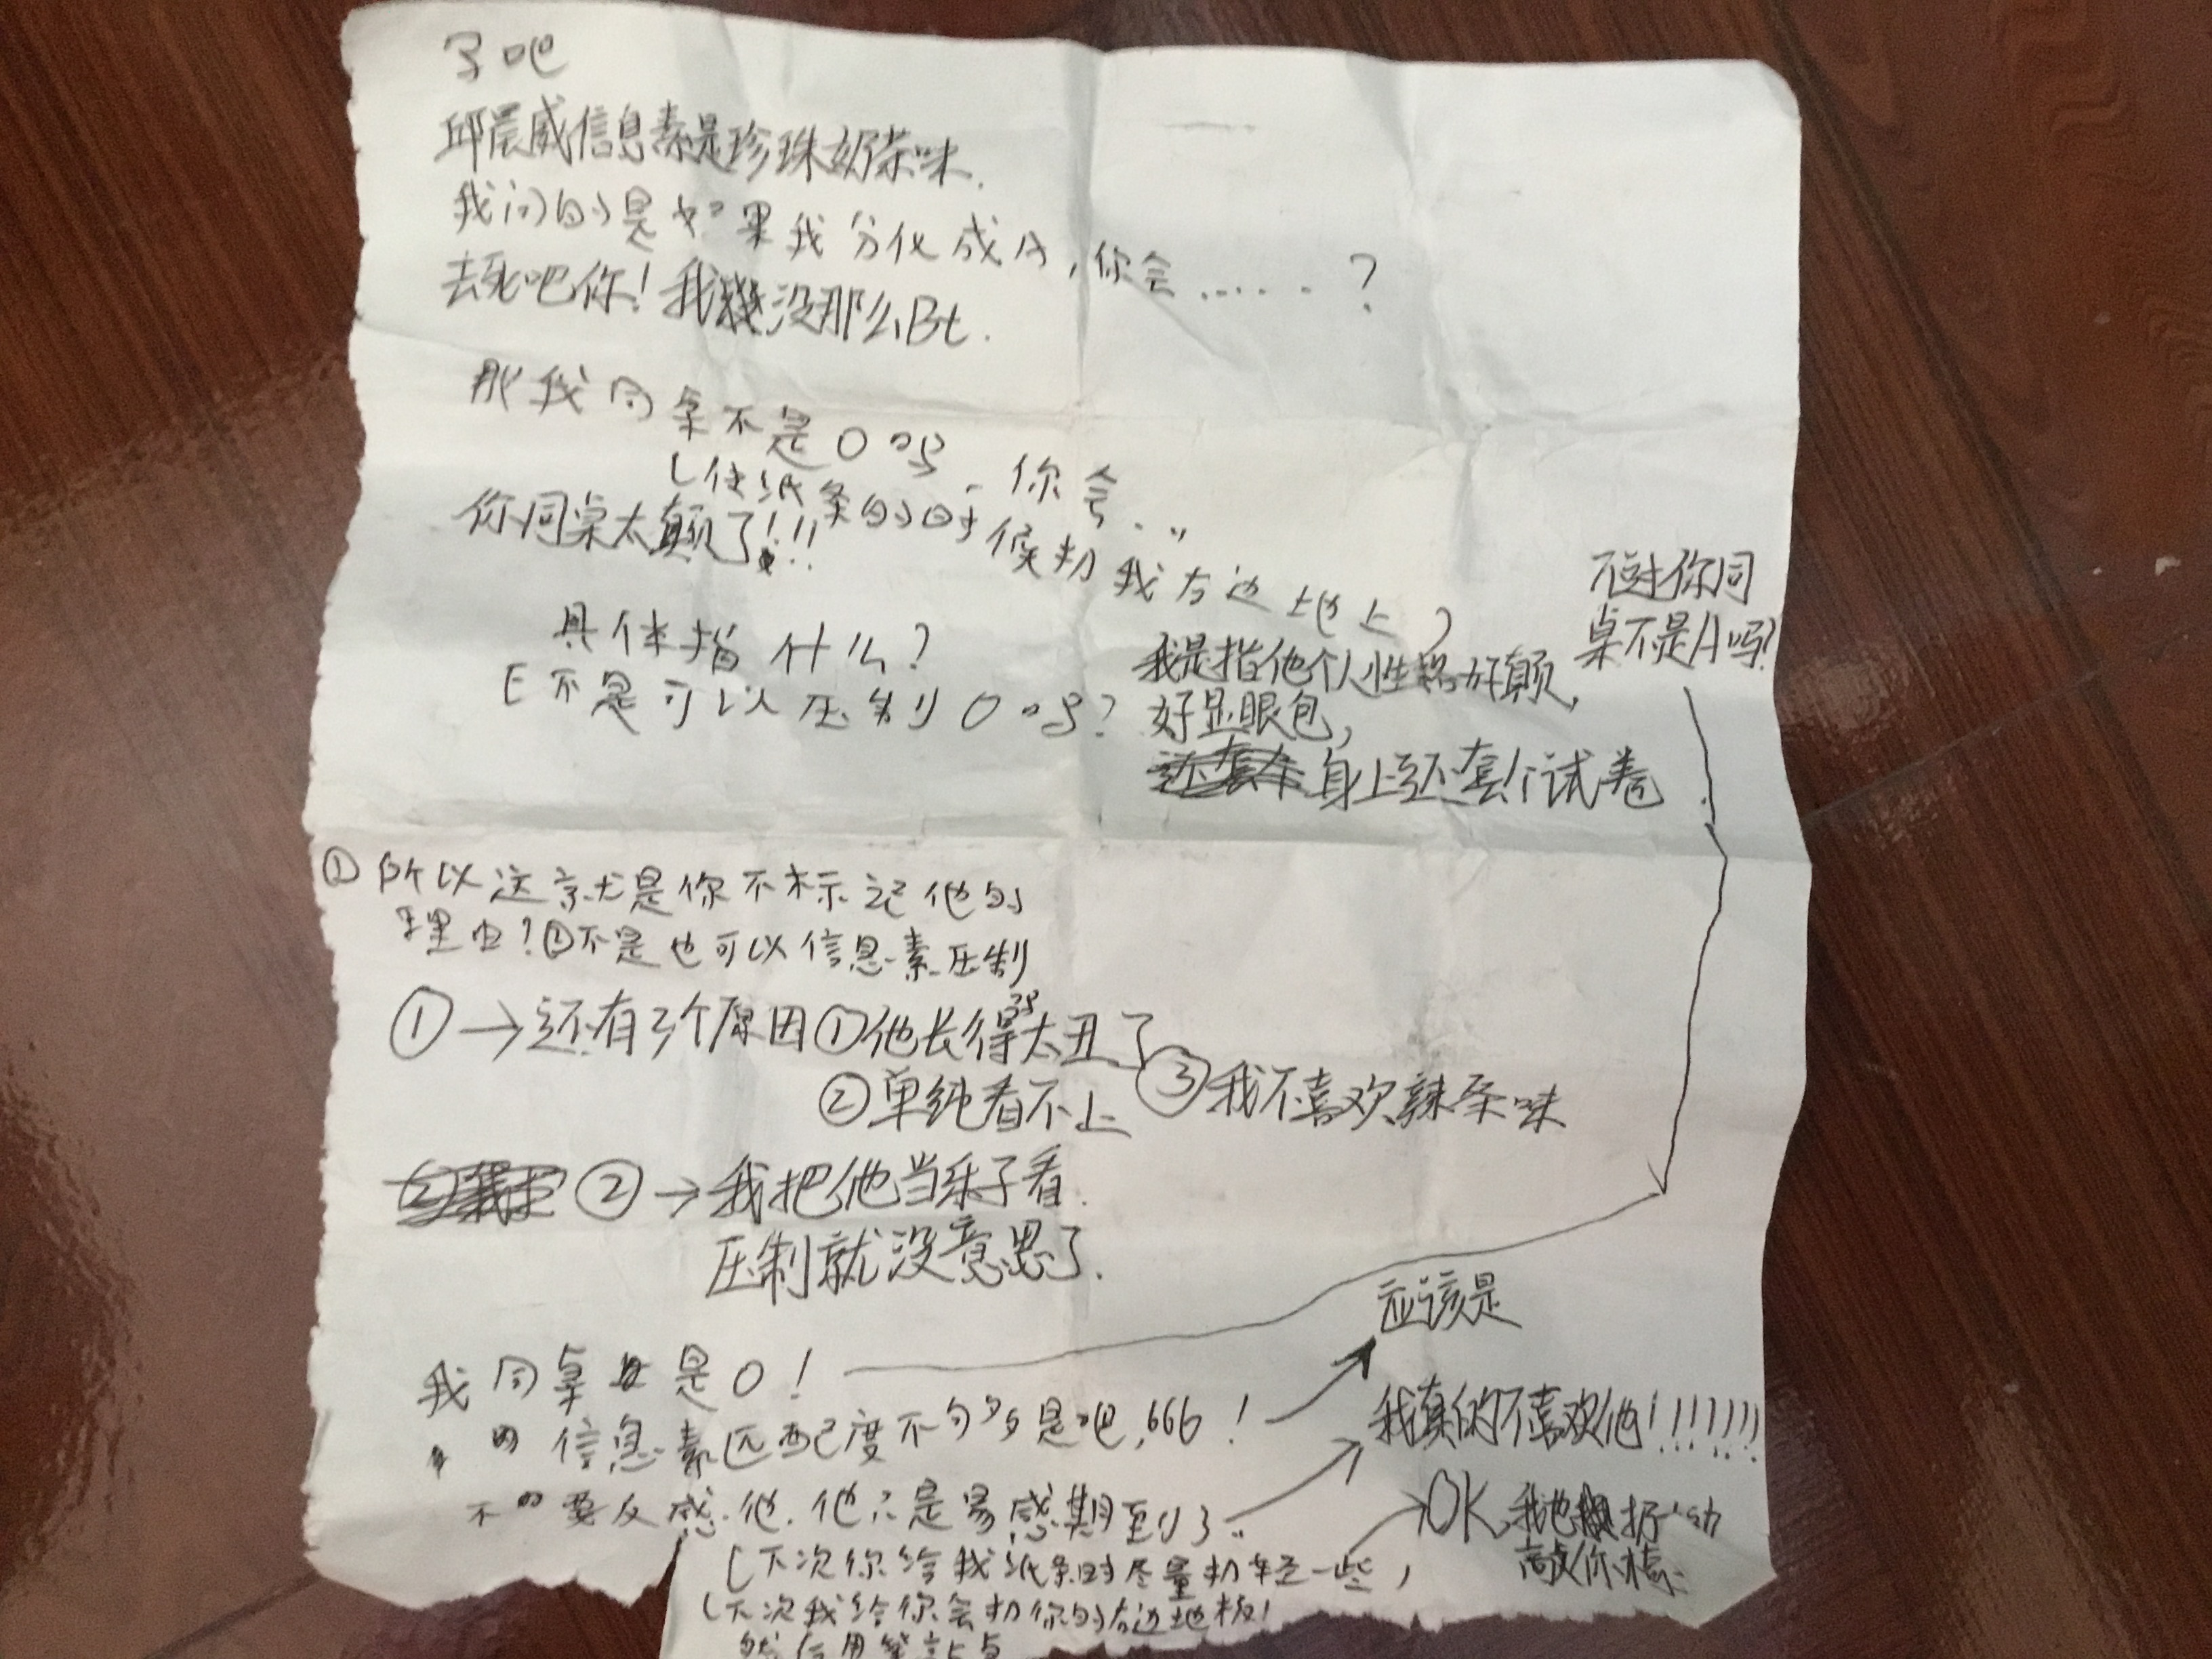 了吧
邱晨威信息素是珍珠奶茶味.
我问的是如果我分化成A,你会……?
去死吧你!我没那么Bt.
那我同桌不是O吗.你会…
(传纸条的时候扔我右边地上)
你同桌太颠了!!!
不对你同
桌不是A吗?
具体指什么?
E不是可以压制O吗?
我是指他个人性格好颠,
好显眼包,
身上还套个试卷
①所以这就是你不标记他的
理由?②不是也可以信息素压制
①→还有3个原因①他长得太丑了
②单纯看不上 ③我不喜欢辣条味
②→我把他当乐子看.
压制就没意思了.
应该是
我同桌是O!
信息素匹配度不够是吧,666!
我真的不喜欢他!!!!!!!
不要反感他.他只是易感期到了..
OK,我也扔
敲你桌
(下次你给我纸条时尽量扔轻一些)
(下次我给你会扔你的右边地板)